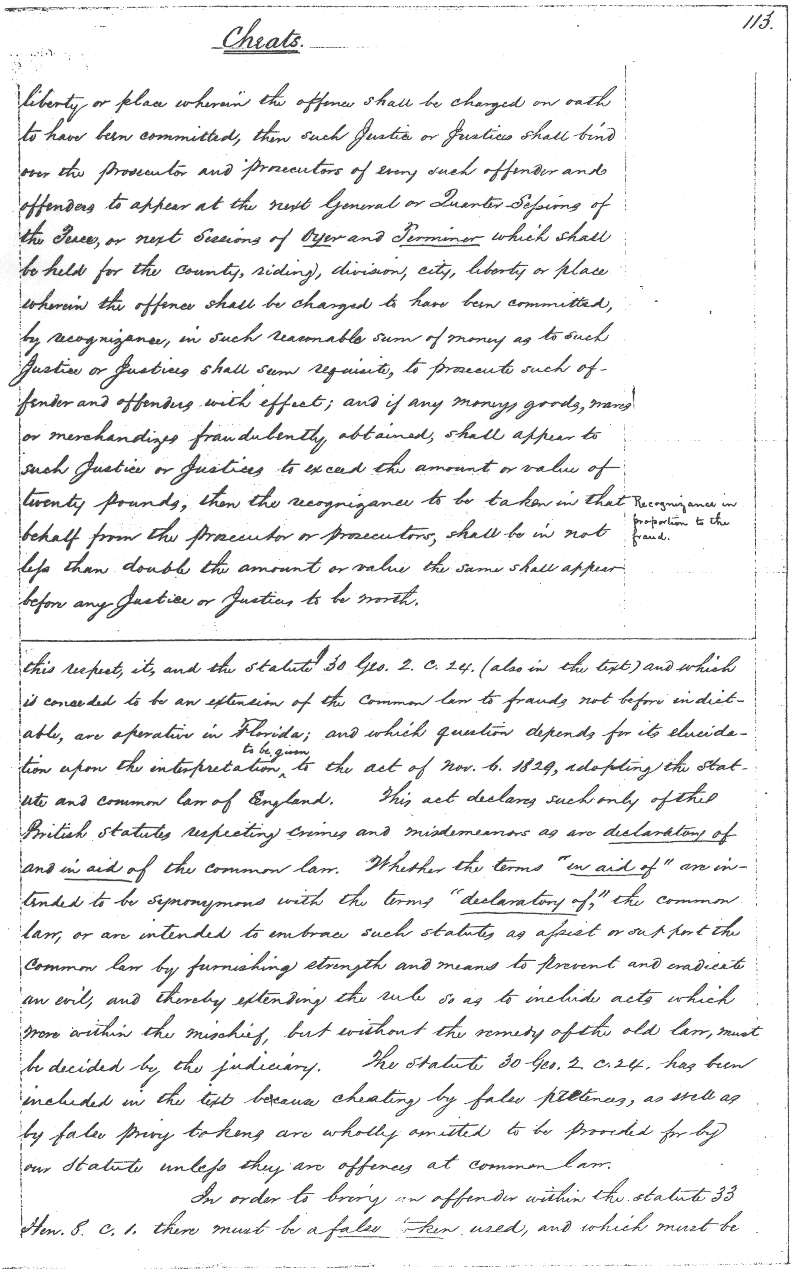 113.
Cheats.
liberty or place wherein the offence shall be charged on oath
to have been committed, then such Justice or Justices shall bind
over the Prosecutor and Prosecutors of every such offender and
offenders to appear at the next General or Quarter Sessions of
the Peace, or next Sessions of Oyer and Terminer which shall
be held for the county, riding, division, city, liberty or place
wherein the offence shall be charged to have been committed,
by recognizance, in such reasonable sum of money as to such
Justice or Justices shall seem requisite, to prosecute such of-
fender and offenders with effect; and if any moneys goods, wares
or merchandizes fraudulently obtained, shall appear to
such Justice or Justices to exceed the amount or value of
twenty pounds, then the recognizance to be taken in that
behalf from the Prosecutor or prosecutors, shall be in not
less than double the amount or value the same shall appear
before any Justice or Justices to be worth.
Recognizance in
proportion to the
fraud.
this respect, it, and the statute 30 Geo. 2. c. 24. (also in the text) and which
is conceded to be an extension of the common law to frauds not before indict-
able, are operative in Florida; and which question depends for its elucida-
to be given
tion upon the interpretation ^ to the act of Nov. 6. 1829, adopting the stat-
ute and common law of England. This act declares such only of the
British statutes respecting crimes and misdemeanors as are declaratory of
and in aid of the common law. Whether the terms "in aid of" are in-
tended to be synonymous with the terms "declaratory of," the common
law, or are intended to embrace such statutes as assist or support the
common law by furnishing strength and means to prevent and eradicate
an evil, and thereby extending the rule so as to include acts which
were within the mischief, but without the remedy of the old law, must
be decided by the judiciary. The statute 30 Geo. 2 c. 24. has been
included in the text because cheating by false pretences, as well as
by false privy tokens are wholly omitted to be provided for by
our statute unless they are offences at common law.
In order to bring an offender within the statute 33
Hen. 8. c. 1. there must be a false token used, and which must be